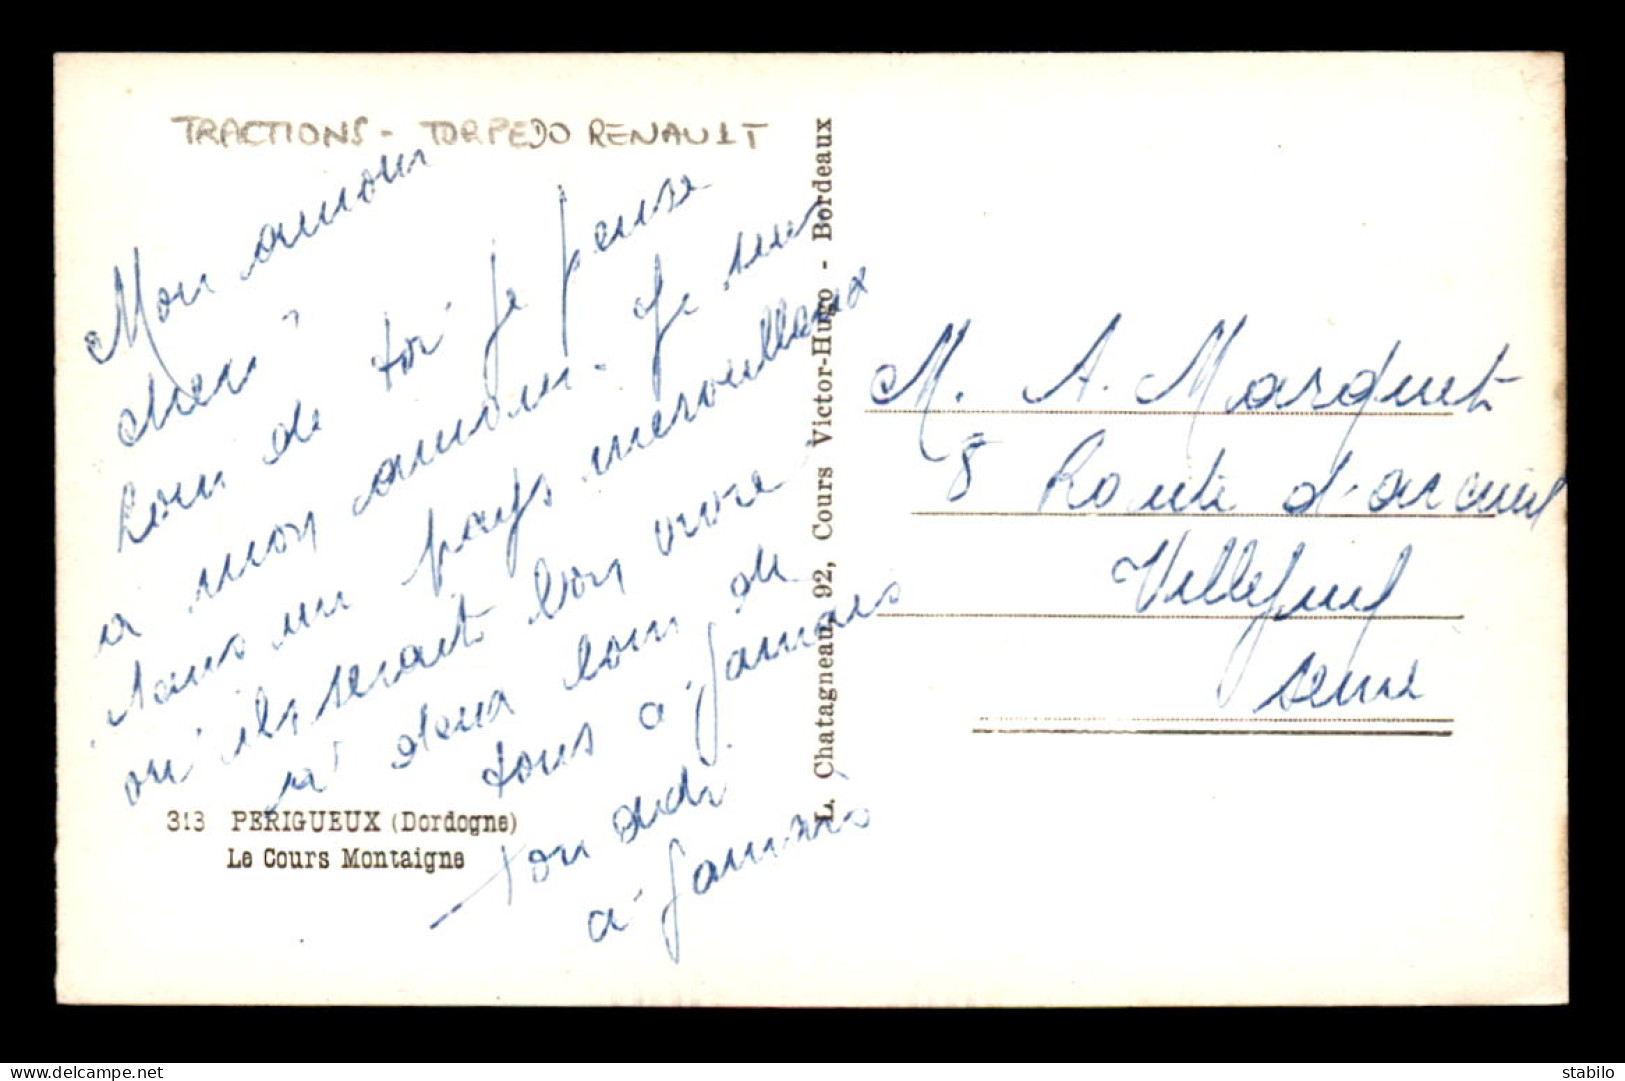 TRACTIONS - TORPEDO RENAULT
Mon amour
cheri
Loin de toi je pense
a mon amour. Je suis
dans un pays merveilleux
ou ils serait bon vivre
a deux loin de
tous a jamais
ton dédi
a jamais
313 PERIGUEUX (Dordogne)
Le Cours Montaigne
L. Chatagneau, 92, Cours Victor-Hugo - Bordeaux
M. A. Marquet
8 Route d'arcueil
Villejuif
seine
delcampe.net
stabilo